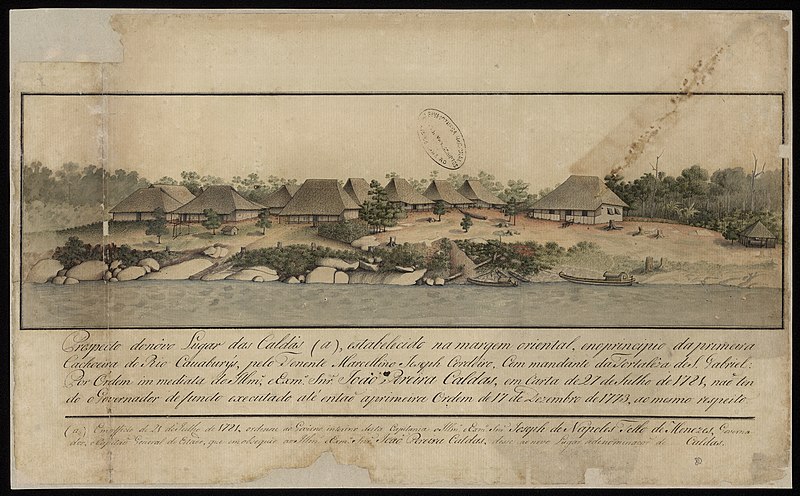 Prospecto do nôvo Lugar das Caldas (a), estabelecido na margem oriental, e no principio da primeira
Cachoeira do Rio Cauaburýs, pelo Tenente Marcellino Joseph Cordeiro, Commandante da Fortaleza de S. Gabriel:
Por Ordem immediata do Illmo, e Exmo Snr. João Pereira Caldas, em Carta de 27 de Julho de 1781, naõ ten
do o Governador defunto executado até entaõ a primeira Ordem de 17 de Dezembro de 1773, ao mesmo respeito.
(a) Em officio de 21 de Julho de 1781, ordenou ao Governo interino desta Capitania o Illmo, e Exmo Snr. Joseph de Napoles Tello de Menezes, Governa
dor, e Capitaõ General do Estado, que em obsequio ao Illmo, e Exmo Snr. Joaõ Pereira Caldas, désse ao novo Lugar a denominaçaõ de Caldas.